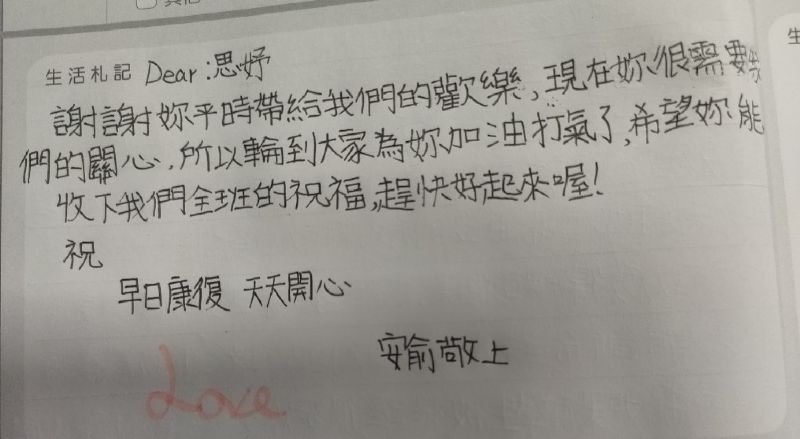 生活札記 Dear:思妤
謝謝妳平時帶給我們的歡樂,現在妳很需要我
們的關心,所以輪到大家為妳加油打氣了,希望妳能
收下我們全班的祝福,趕快好起來喔!
祝
早日康復 天天開心
安俞敬上
Love